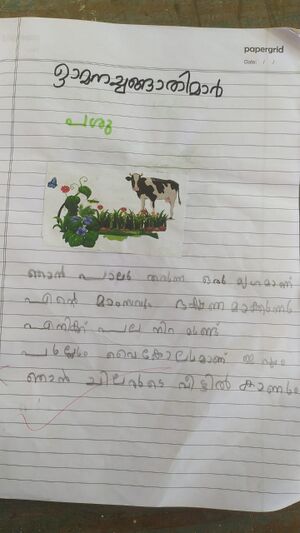 papergrid
Date: / /
ഓമനച്ചങ്ങാതിമാർ
പശു
ഞാൻ പാൽ തരുന്ന ഒരു മൃഗമാണ്
എന്റെ മാംസവും
എനിക്ക് പല നിറ മുണ്ട്
വൈക്കോലുമാണ്
ഞാൻ ചിലരുടെ വീട്ടിൽ കാണും